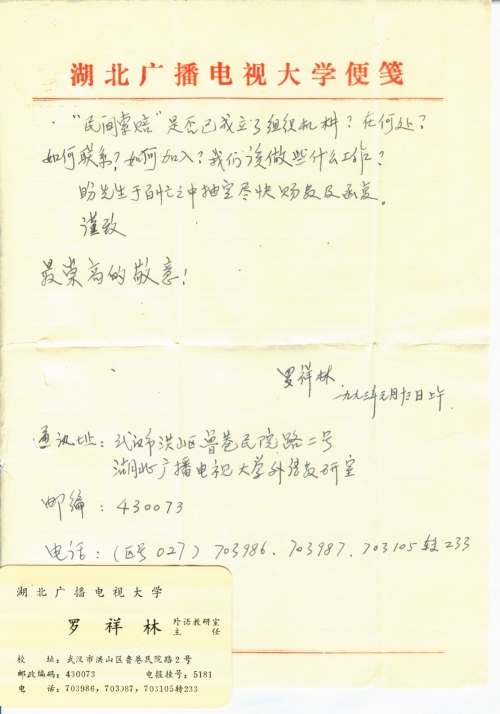 湖北广播电视大学便笺
“民间索赔”是否已成立了组织机料？在何处？
如何联系？如何加入？我们该做些什么工作？
盼先生于百忙之中抽空尽快赐复及函复。
谨致
最崇高的敬意！
罗祥林
一九九三年元月十三日上午
通讯址：武汉市洪山区鲁巷民院路二号
湖北广播电视大学外语教研室
邮编：430073
电话：（区号027）703986．703987．703105转233
湖北广播电视大学
罗祥林 外语教研室
主任
校址：武汉市洪山区鲁巷民院路2号
邮政编码：430073 电报挂号：5181
电话：703986，703987，703105转233